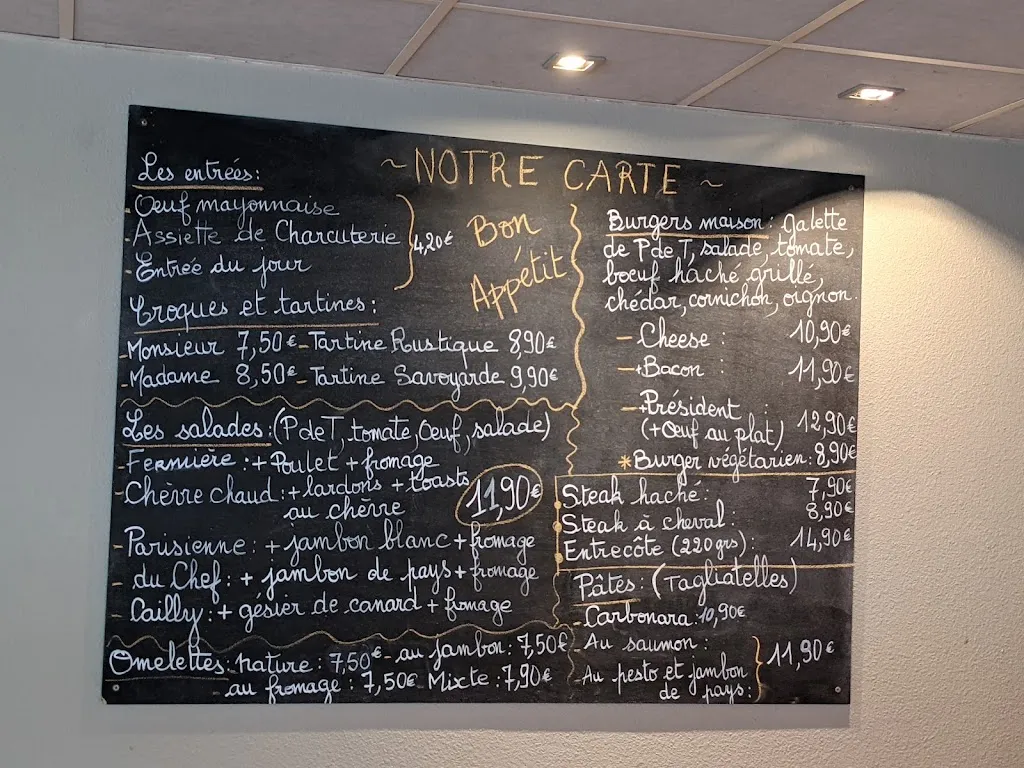 ~ NOTRE CARTE ~
Bon
Appétit
Les entrées:
- Œuf mayonnaise
- Assiette de Charcuterie
- Entrée du jour
4,20€
Croques et tartines:
- Monsieur 7,50€ - Tartine Rustique 8,90€
- Madame 8,50€ - Tartine Savoyarde 9,90€
Les salades: (P de T, tomate, Œuf, salade)
- Fermière: + Poulet + fromage
- Chèvre chaud: + lardons + toasts
au chèvre
11,90€
- Parisienne: + jambon blanc + fromage
- du Chef: + jambon de pays + fromage
- Cailly: + gésier de canard + fromage
Omelettes: nature: 7,50€ - au jambon: 7,50€
au fromage: 7,50€ - Mixte: 7,90€
Burgers maison: Galette
de P de T, salade, tomate,
bœuf haché grillé,
chédar, cornichon, oignon.
- Cheese: 10,90€
- + Bacon: 11,90€
- + Président:
(+ Œuf au plat) 12,90€
* Burger végétarien: 8,90€
Steak haché: 7,90€
Steak à cheval: 8,90€
Entrecôte (220grs): 14,90€
Pâtes: (Tagliatelles)
- Carbonara: 10,90€
- Au saumon:
- Au pesto et jambon
de pays:
11,90€